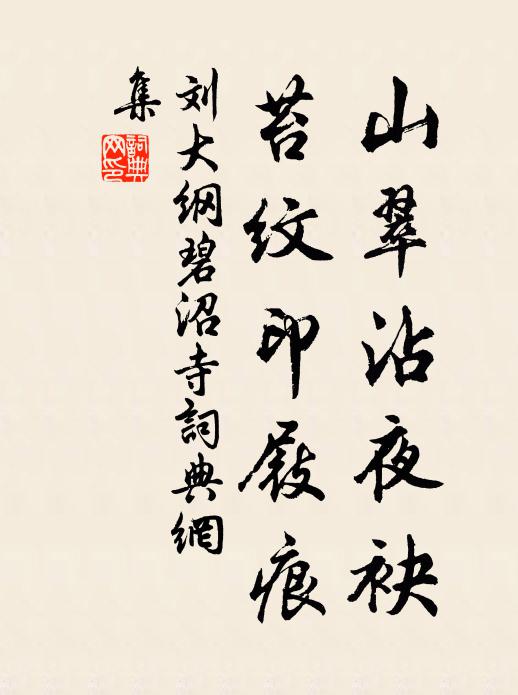 山翠沾夜袂
苔纹印屐痕
刘大纲碧沼寺詞典網
集
詞典
网印